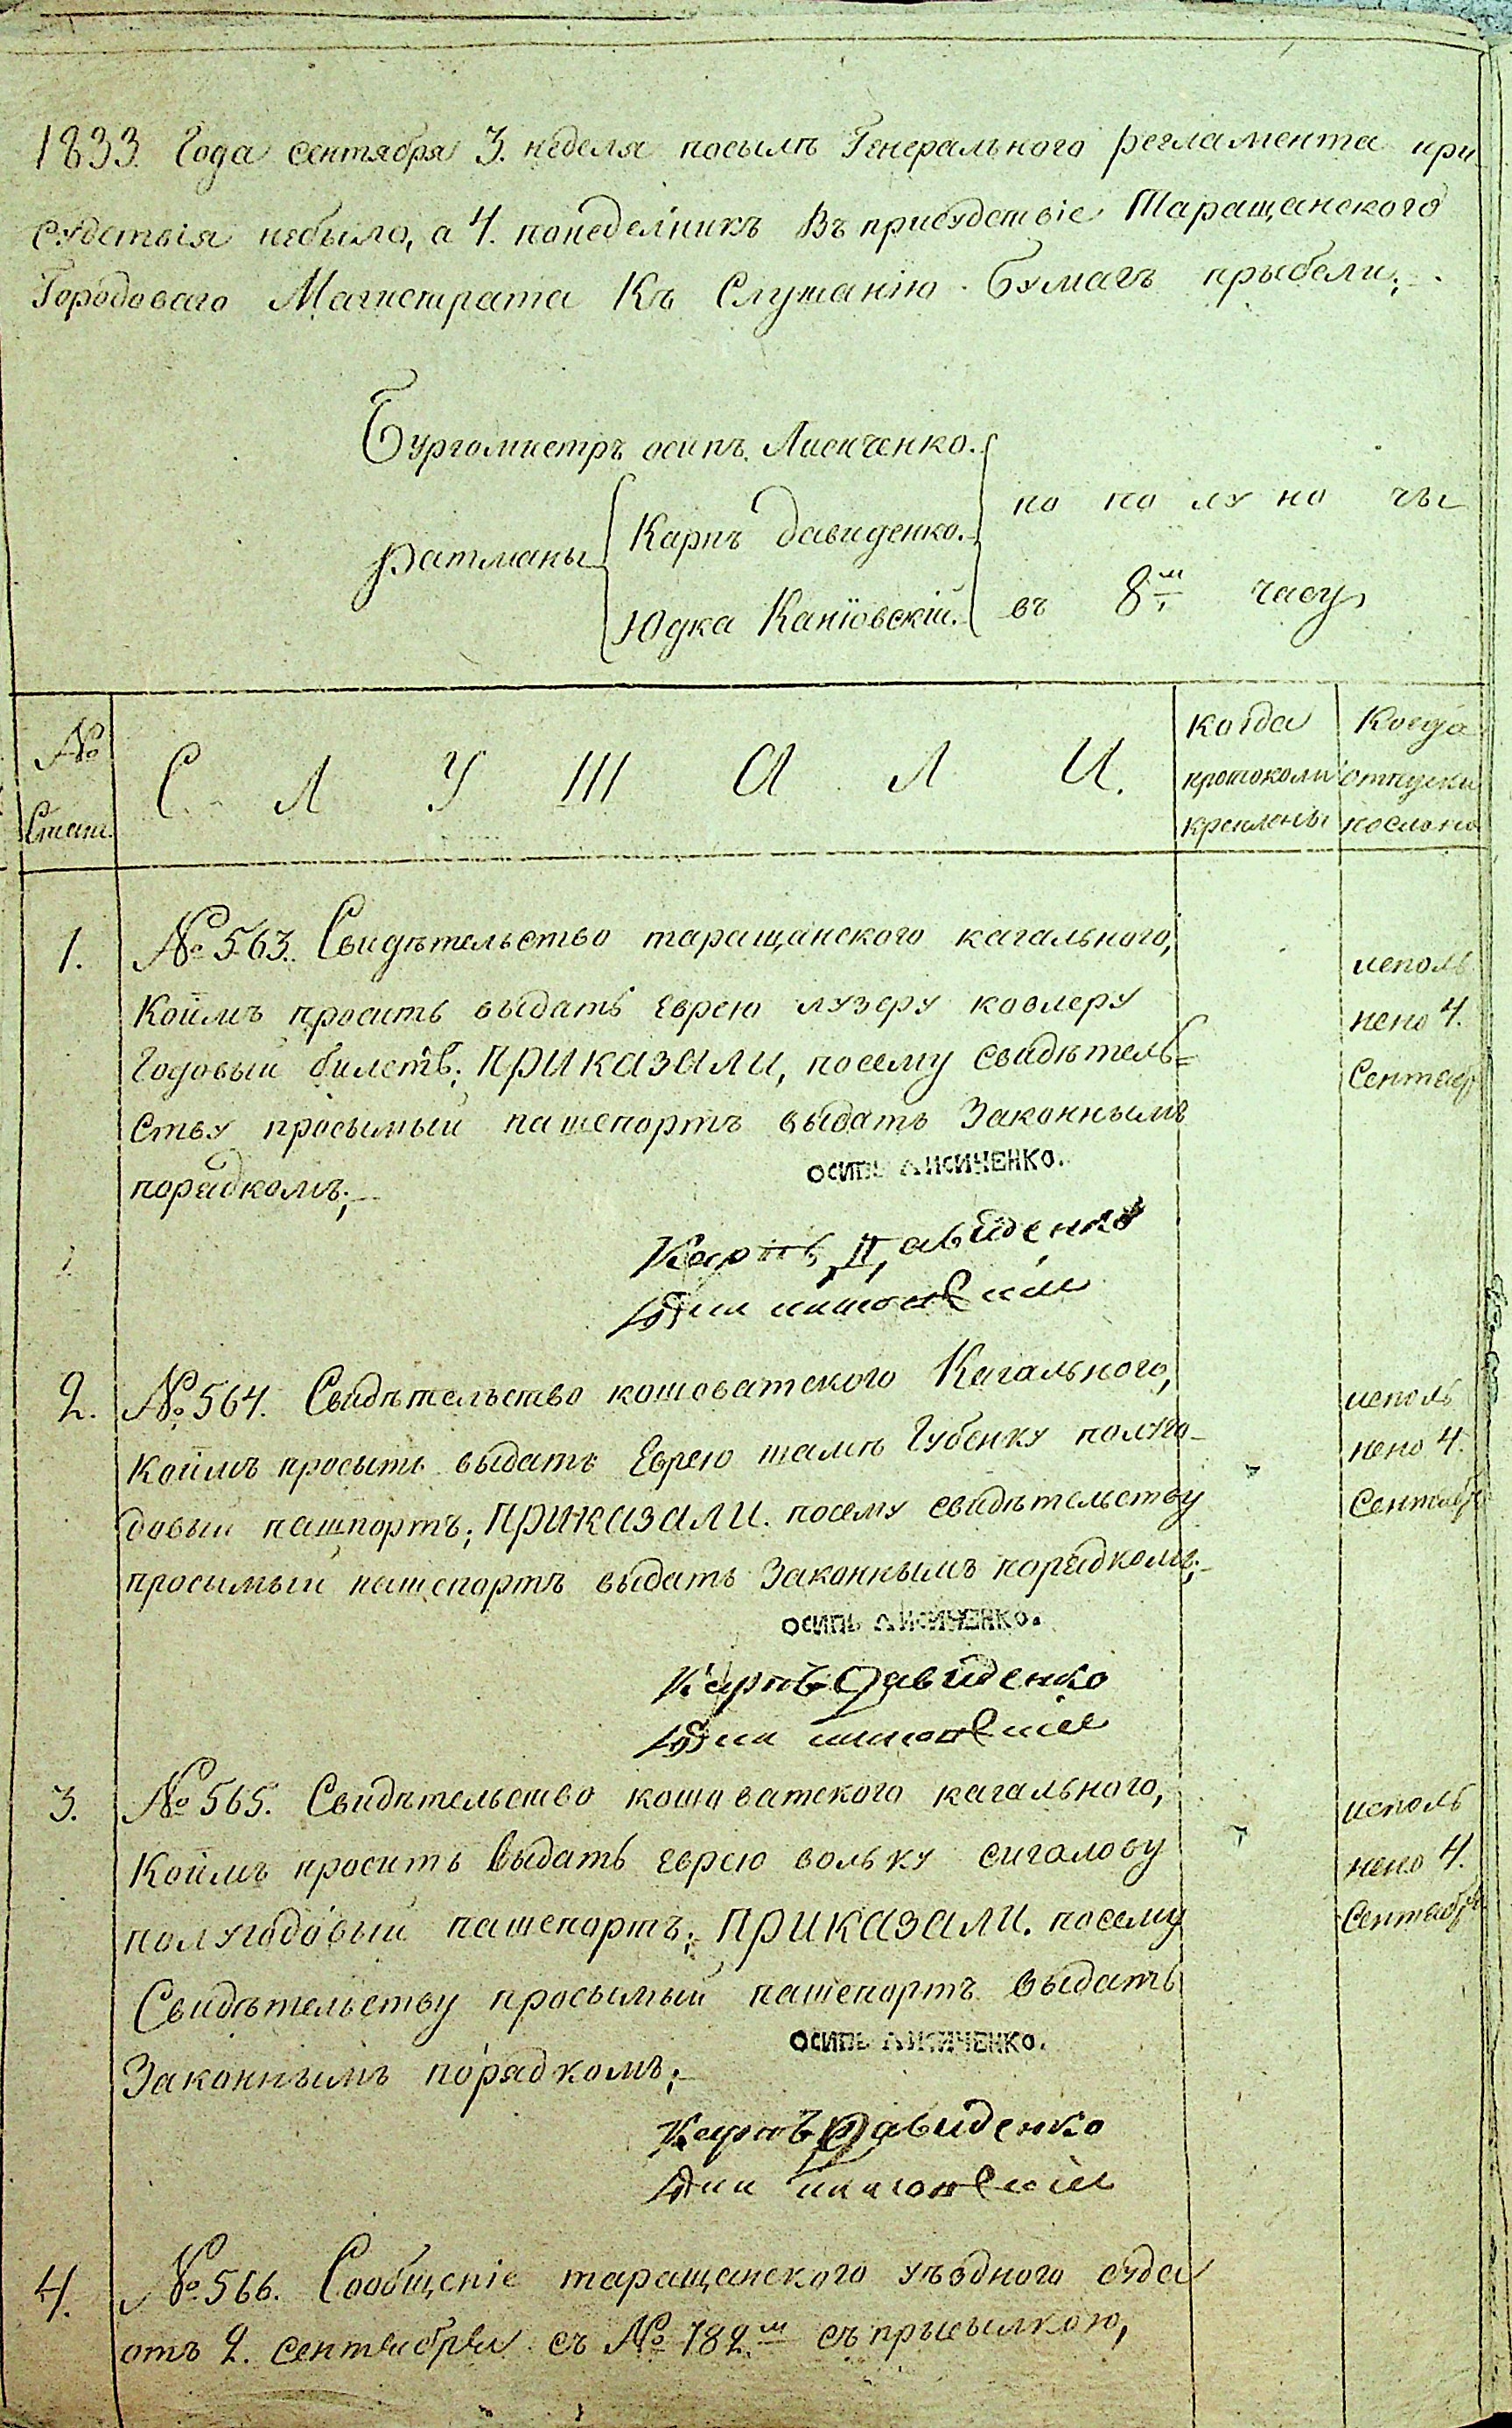 1833. Года сентября 3. неделя посылъ Генерального регламента при
судствія небыло, а 4. понеделникъ Въ присудствіе Таращанского
Городоваго Магистрата Къ Слушанію Бумагъ прыбели;
Бургомистръ осипъ Лисиченко.
Ратманы
Карпъ Давиденко.
Юдка Каніовскій.
по полуночы
въ 8м часу
№ Стат.
СЛУШАЛИ.
когда протоколи крепленъ
Когда отпуски послано
1.
№ 563. Свидѣтельство таращанского кагального,
Коимъ просить выдать еврею лузеру ковлеру
Годовый билетъ; ПРИКАЗАЛИ, посему свидѣтель=
ству просымый пашепортъ выдать Законнымъ
порядкомъ;
исполь
нено 4.
Сентяб
осипъ Лисиченко.
Карпъ Давиденко
2.
№ 564. Свидѣтельство кошоватского Кагального,
Коимъ просыть выдать Еврею шамѣ Губенку полуго-
довый пашпортъ; ПРИКАЗАЛИ. посему свидѣтельству
просымый пашепортъ выдать Законнымъ порядкомъ;
исполь
нено 4.
Сентябр
осипъ Лисиченко.
Карпъ Давиденко
3.
№ 565. Свидѣтельство кошоватского кагального,
Коимъ просить выдать еврею вольку сигалову
полугодовый пашепортъ; ПРИКАЗАЛИ. посему
Свидѣтельству просымый пашепортъ выдать
Законнымъ порядкомъ;
исполь
нено 4.
Сентября
осипъ Лисиченко.
Карпъ Давиденко
4.
№ 566. Сообщеніе таращанского уѣздного суда
отъ 2. сентября съ № 782м съ прысылкою,